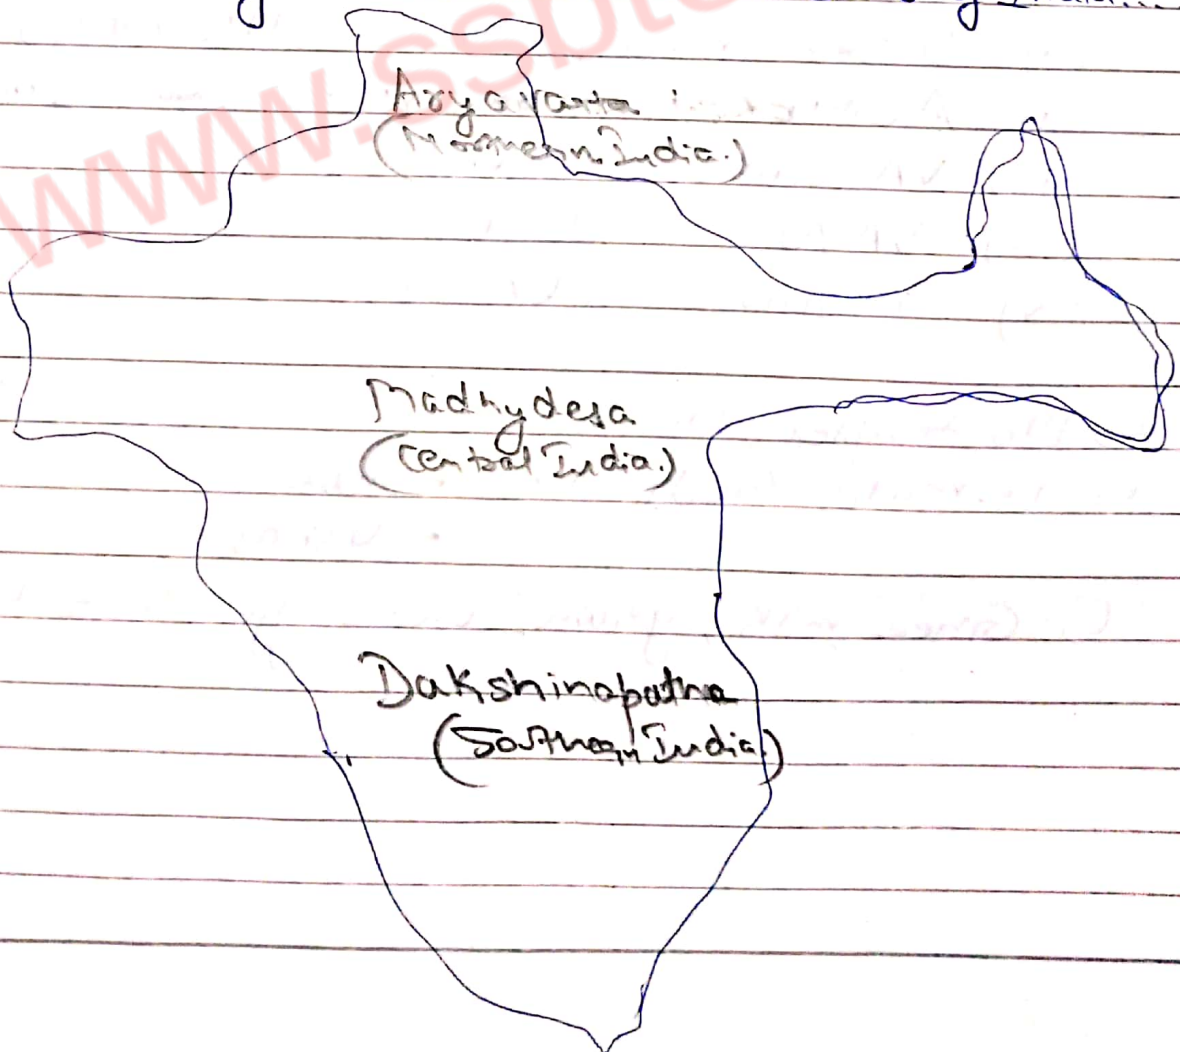 India
www.ssbt
Aryavarta :
(Northern India.)
Madhydesa
(Central India.)
Dakshinapatha
(Southern India.)